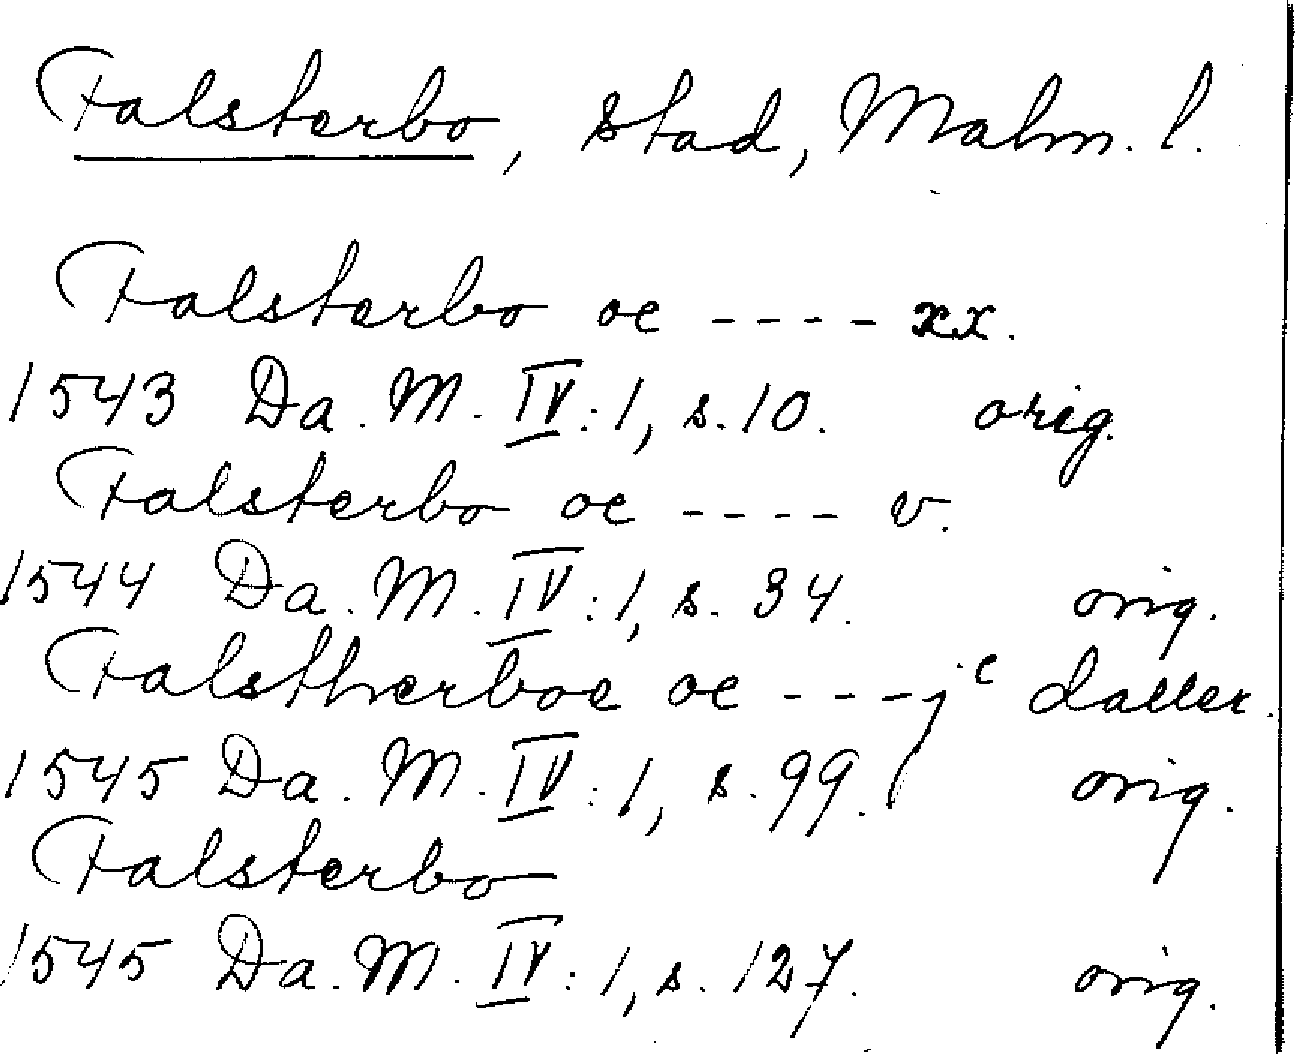 Falsterbo, stad, Malm. l.
Falsterbo oc ---- xx.
1543 Da. M. IV:1, s. 10. orig.
Falsterbo oc ---- v.
1544 Da. M. IV:1, s. 34. orig.
Falstherboe oc --- jc daller.
1545 Da. M. IV:1, s. 99. orig.
Falsterbo
1545 Da. M. IV:1, s. 127. orig.